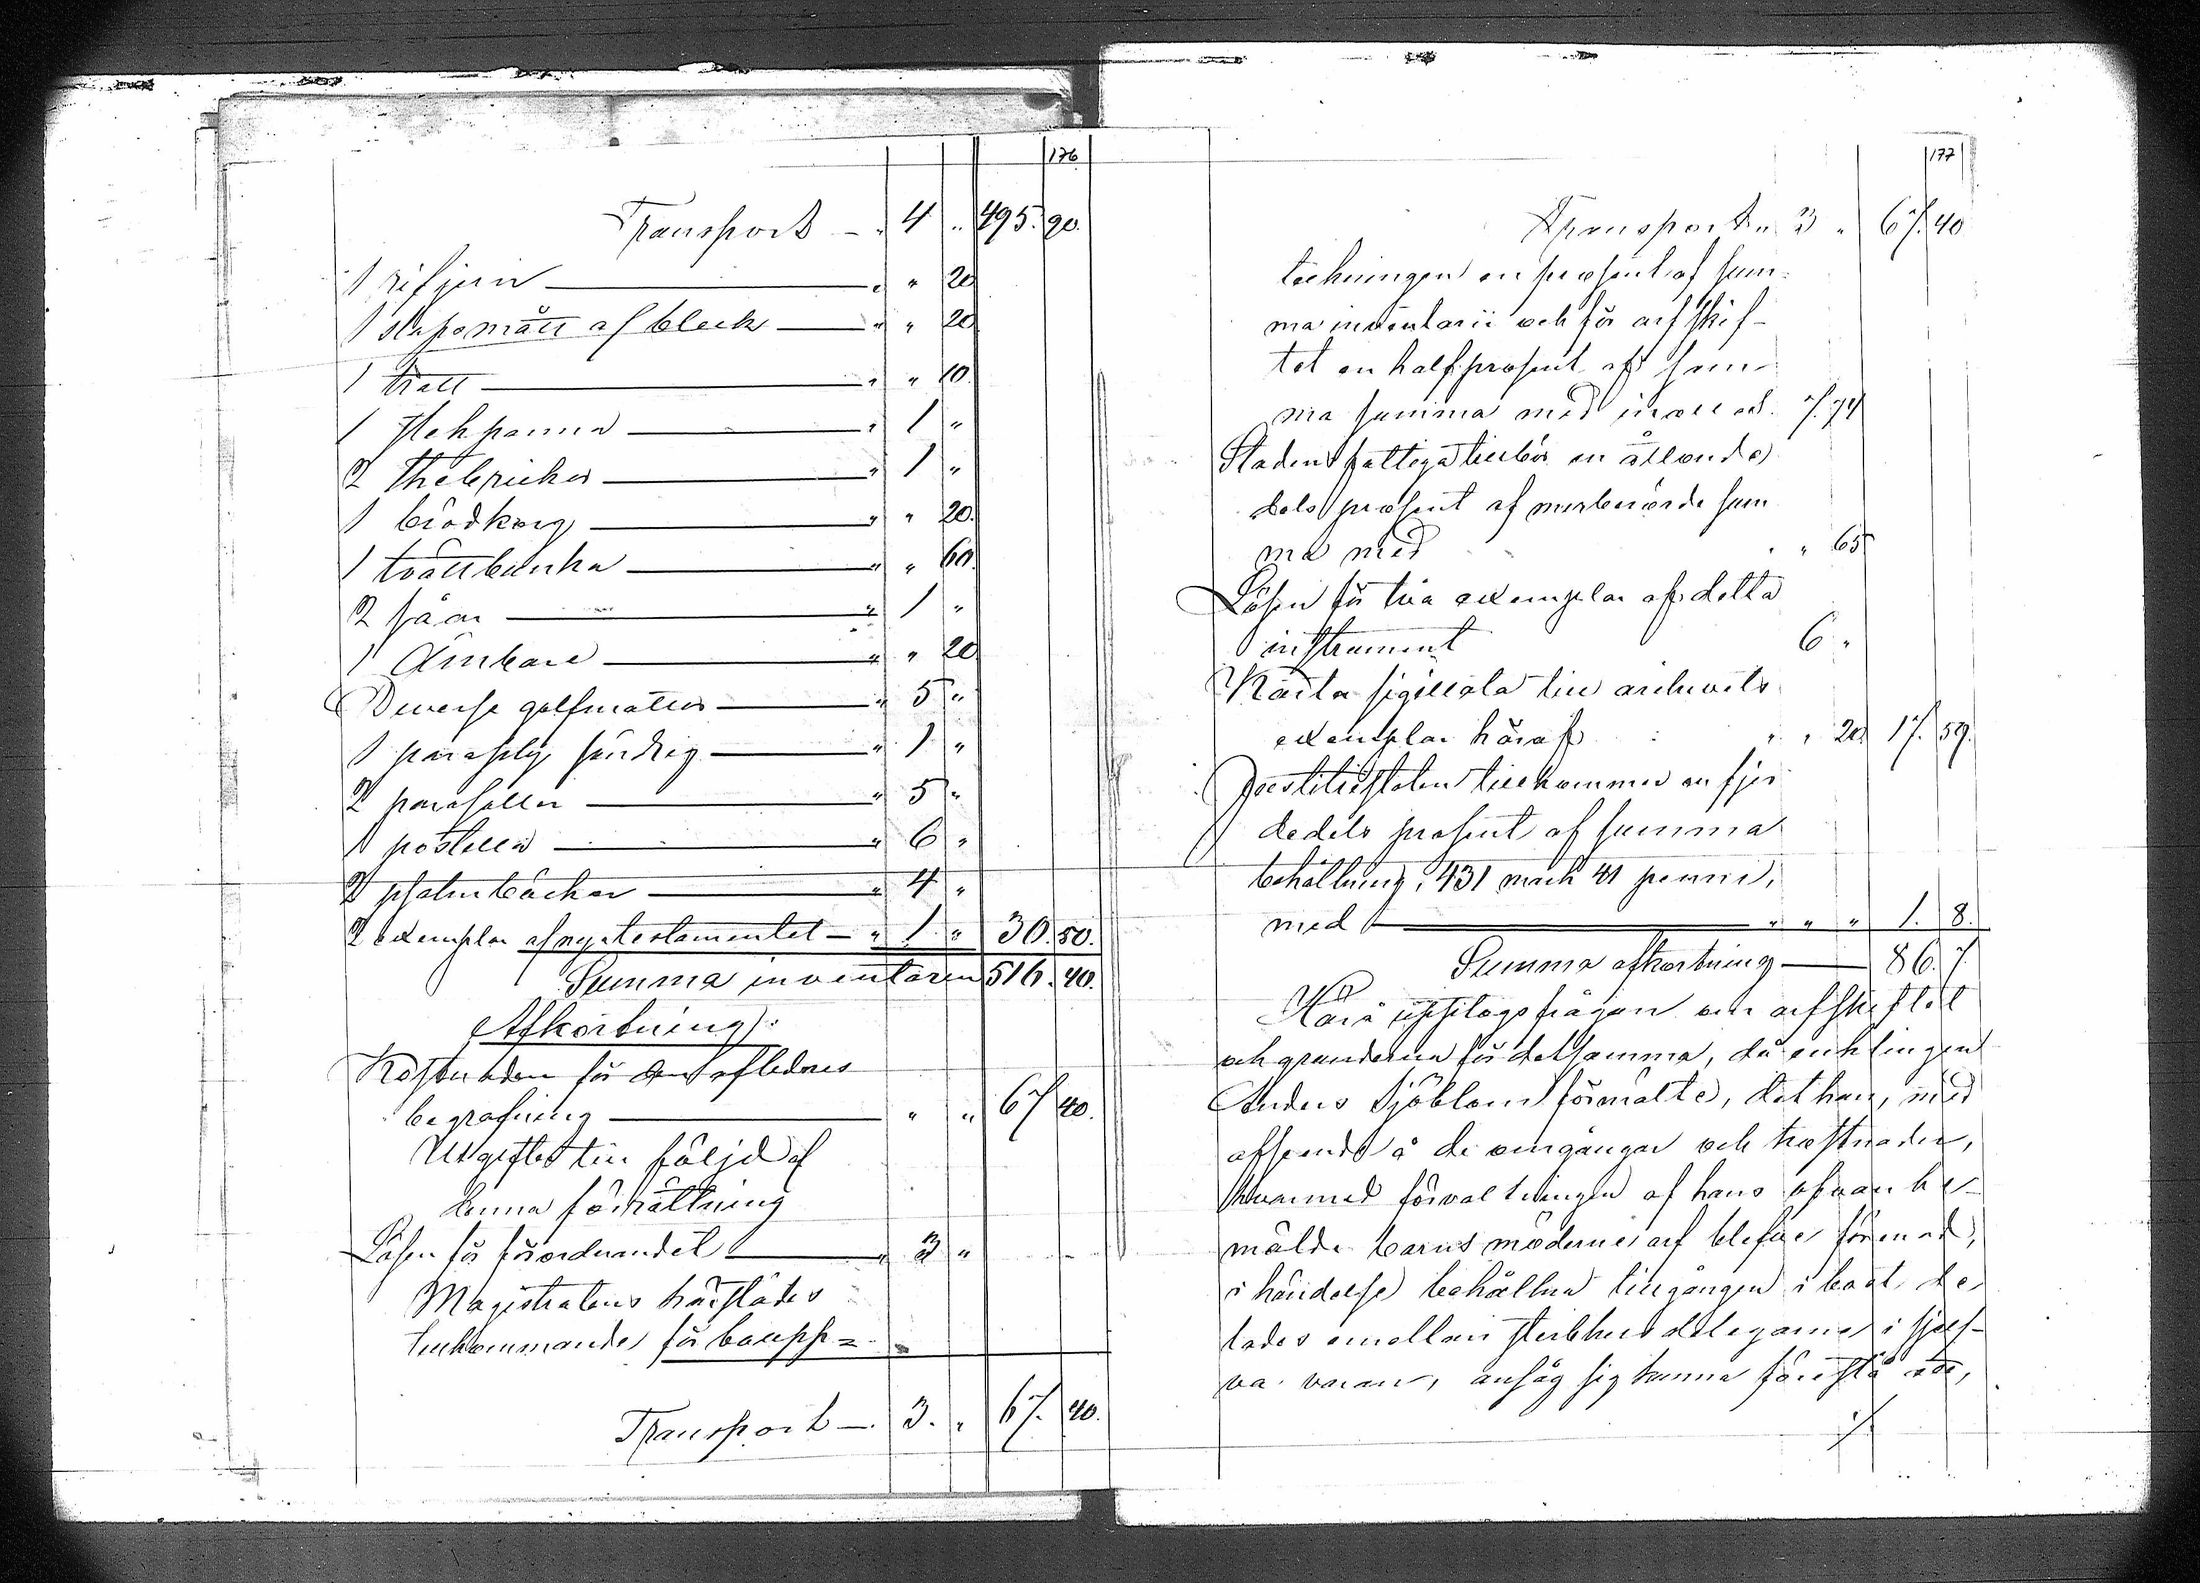 176
Transport — „ 4 „ 495. 90.
1 rifjern — „ „ 20
1 stopsmått af bleck — „ „ 20
1 tratt — „ „ 10.
1 stekpanna — „ 1 „
2 thebrickor — „ 1 „
1 brödkorg — „ „ 20.
1 tvättbunka — „ „ 60.
2 såar — „ 1 „
1 Ämbare — „ „ 20
Diverse golfmattor — „ 5 „
1 paraply söndrig — „ 1 „
2 parasoller — „ 5 „
1 postilla — „ 6 „
2 psalmböcker — „ 4 „
2 exemplar af nya testamentet — „ 1 „ 30. 50.
Summa inventarii 516. 40.
Afkortning:
Kostnaden för den aflidnes
begrafning — „ „ 67 40.
Utgifter till följd af
denna förrättning
Lösen för förordnandet — „ 3 „
Magistratens härstädes
tillkommande för boupp=
Transport — 3. „ 67. 40.
177
Transport „ 3 „ 67. 40
teckningen en prosent af sum-
ma inventarii och för arfskif-
tet en half prosent af sam-
ma summa med inalles 7. 74
Stadens fattiga tillkör en åttonde
dels prosent af merberörde sum
ma med „ „ 65
Lösen för två exemplar af detta
instrument 6 „
Karta sigillata till arkivets
exemplar häraf „ „ 20. 17. 59.
Justitiestaten tillkommer en fjer
dedels prosent af summa
behållning, 431 mark 41 penni,
med — „ „ „ 1. 8.
Summa afkortning — 86. 7
Härå upptogs frågan om arfskiftet
och grunderna för detsamma, då enklingen
Anders Sjöblom förmälte, det han, med
afseende å de omgångar och kostnader,
hvarmed förvaltningen af hans ofvan be-
mälde barns möderne arf blefve förenad,
i händelse behållna tillgången i boet de-
lades emellan sterbhusdelegarne i sjelf-
va varan, ansåg sig kunna föreslå att,
./.